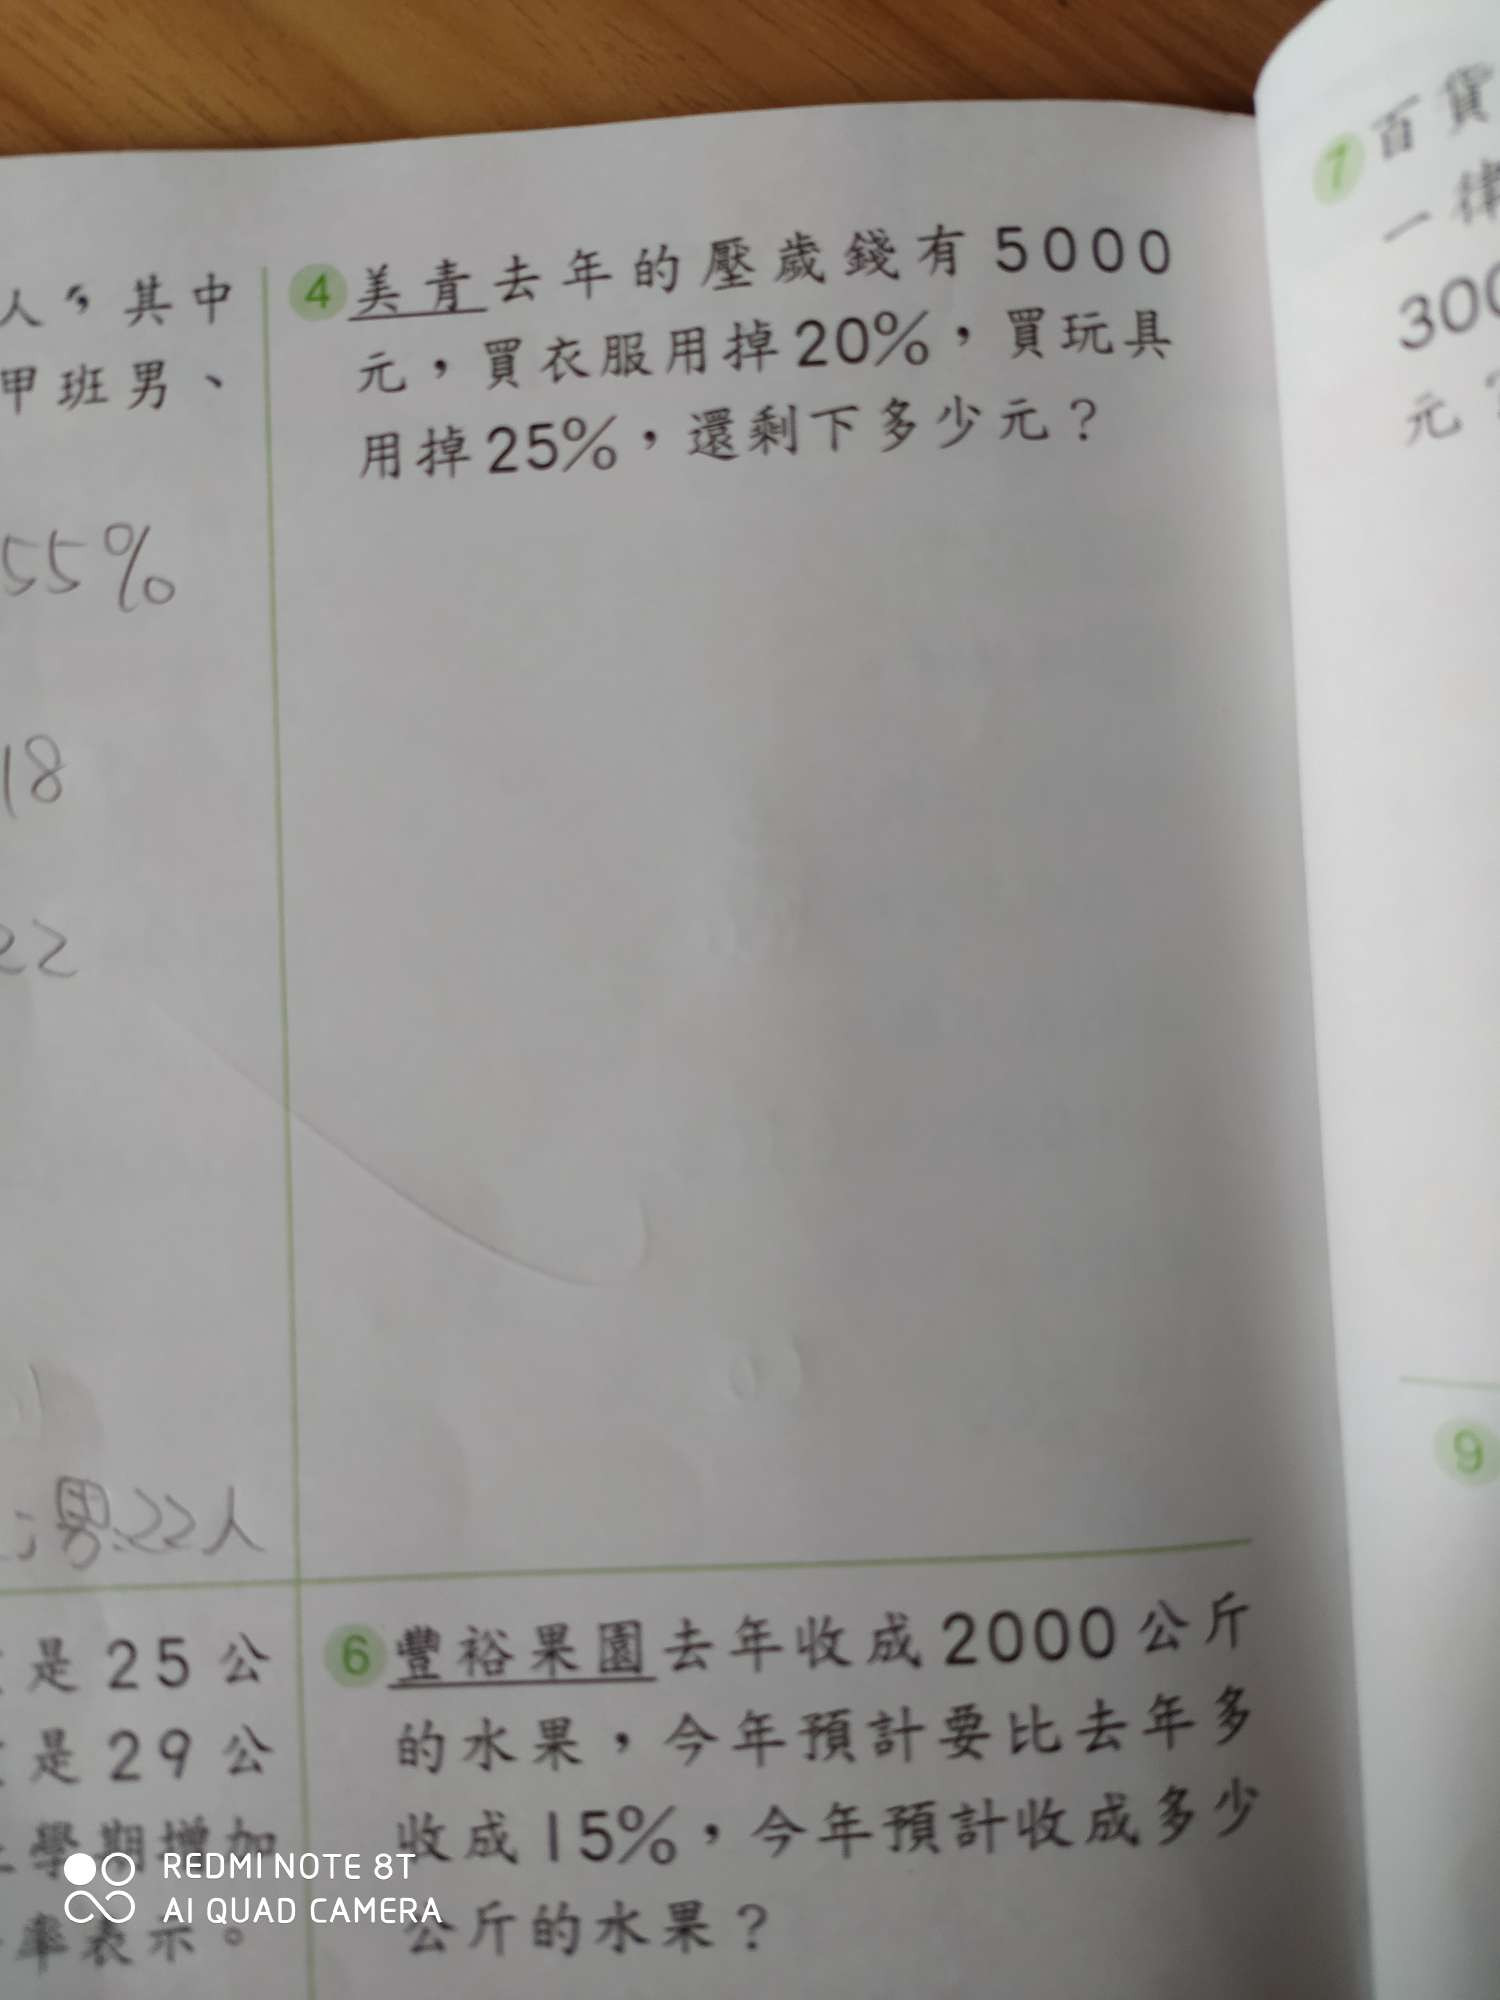 人，其中
甲班男、
55%
18
22
男:22人
是25公
是29公
學期增加
率表示。
4 美青去年的壓歲錢有5000
元，買衣服用掉20%，買玩具
用掉25%，還剩下多少元？
6 豐裕果園去年收成2000公斤
的水果，今年預計要比去年多
收成15%，今年預計收成多少
公斤的水果？
7 百貨
一律
300
元
9
REDMI NOTE 8T
AI QUAD CAMERA